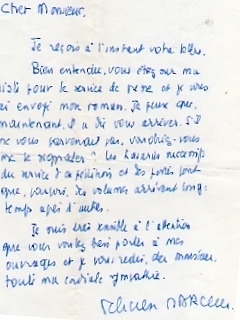 Cher Monsieur,
Je reçois à l'instant votre lettre.
Bien entendu, vous étiez sur ma
liste pour le service de presse et je vous
ai envoyé mon roman. Je pense que,
maintenant, il a dû vous arriver. S'il
ne vous parvenait pas, voudriez-vous
me le rappeler ? Les hasards
du service d'expéditions et des postes font
que, parfois, des volumes arrivent long-
temps après d'autres.
Je suis très sensible à l'attention
que vous voulez bien porter à mes
ouvrages et je vous redis, cher monsieur,
toute ma cordiale sympathie.